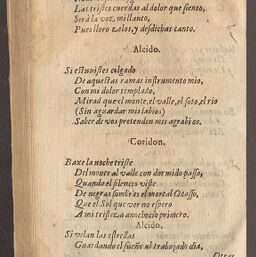 Las tristes cuerdas al dolor que siento,
Será la voz, mi llanto,
Pues lloro zelos, y desdichas canto.
Alcido.
Si estuuistes colgado
De aquestas ramas instrumento mio,
Con mi dolor templado,
Mirad que el monte, el valle, el soto, el rio
(Sin aguardar mis labios)
Saber de vos pretenden mis agrabios.
Coridon.
Baxe la noche triste
Del monte al valle con dormido passo,
Quando el silencio viste
De negras sombras el mortal Ocasso,
Que el Sol que ver no espero
A mi tristeza anochecio primero.
Alcido.
Si velan las estrellas
Guardando el sueño al trabajado dia,
Otras